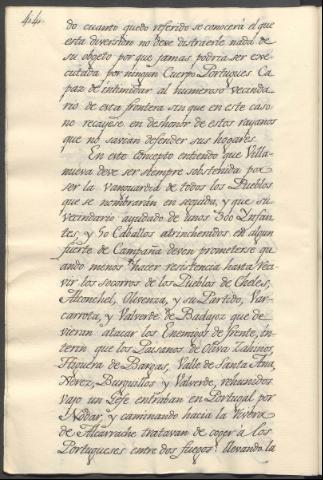 44.
do cuanto quedo referido se conocerá el que
esta diversion no deve distraerse nada de
su objeto por que jamas podria ser exe-
cutada por ningun Cuerpo Portugues Ca
paz de intimidar al numeroso vecinda
rio de esta frontera sin que en este caso
no recayese en deshonor de estos rayanos
que no savian defender sus hogares.
En este concepto entiendo que Villa-
nueva deve ser siempre sobstenida por
ser la vanguardia de todos los Pueblos
que se nombrarán en seguida, y que su
vecindario ayudado de unos 300 Ynfan-
tes, y 50 Caballos atrincherados en algun
fuerte de Campaña deven prometerse qu
ando menos hacer resistencia hasta reci
vir los socorros de los Pueblos de Cheles,
Alconchel, Olivenza, y su Partido, Var-
carrota, y Valverde de Badajoz que de-
vieran atacar los Enemigos de frente, in-
terin que los Paisanos de Oliva Zahinos,
Higuera de Bargas, Valle de Santa Ana,
Xerez, Burguillos y Valverde, rehunidos
vajo un Gefe entraban en Portugal por
Nodar, y caminando hacia la Rivera
de Alcarrache tratavan de coger á los
Portugueses entre dos fuegos: llevando la